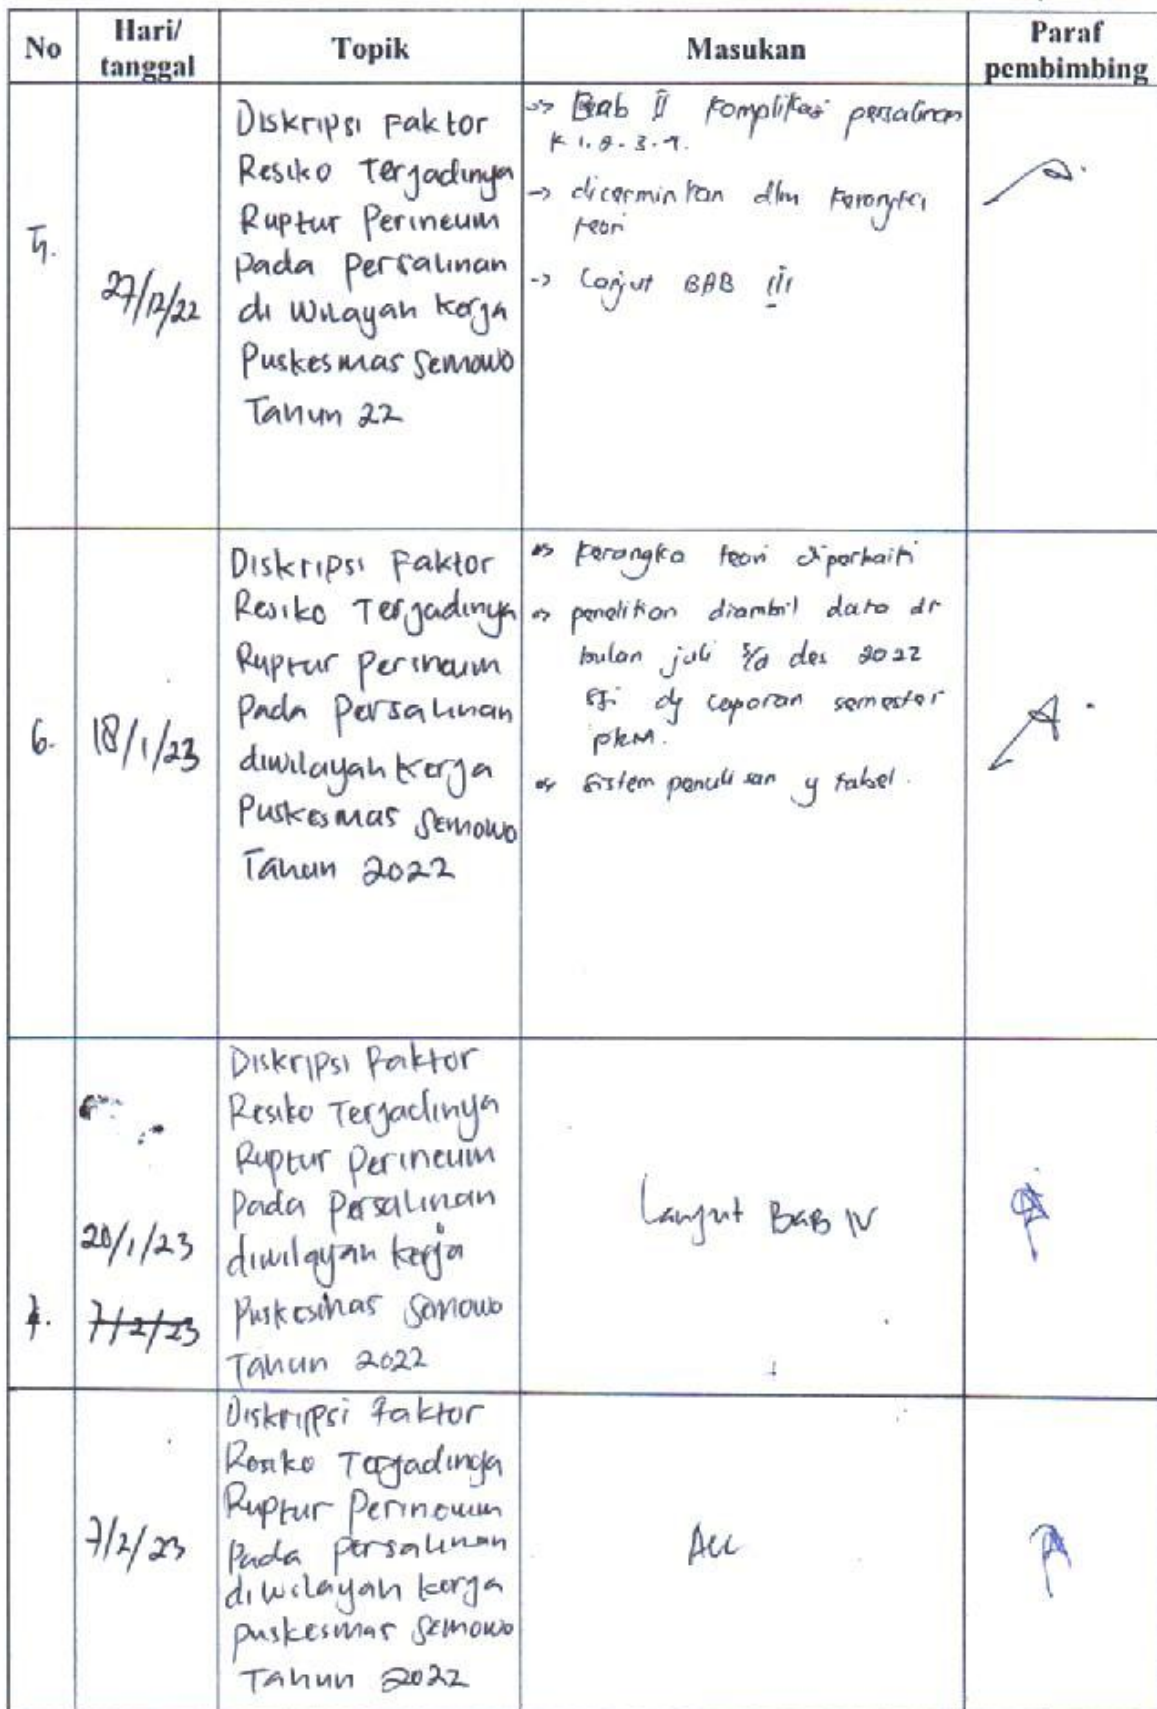 No Hari/ tanggal Topik Masukan Paraf pembimbing
5.
27/12/22
Diskripsi Faktor
Resiko Terjadinya
Ruptur Perineum
pada persalinan
di Wilayah Kerja
Puskesmas Semowo
Tahun 22
-> Bab II Komplikasi persalinan
K 1.2.3.4.
-> dicerminkan dlm kerangka
teori
-> Lanjut BAB III
6.
18/1/23
Diskripsi Faktor
Resiko Terjadinya
Ruptur perineum
Pada Persalinan
diwilayah Kerja
Puskesmas Semowo
Tahun 2022
kerangka teori diperbaiki
penelitian diambil data dr
bulan juli s/d des 2022
dg laporan semester
PKM.
sistem penulisan y tabel.
7.
20/1/23
7/2/23
Diskripsi Faktor
Resiko Terjadinya
Ruptur Perineum
pada Persalinan
diwilayah kerja
Puskesmas Semowo
Tahun 2022
Lanjut BAB IV
7/2/23
Diskripsi Faktor
Resiko Terjadinya
Ruptur Perineum
pada persalinan
diwilayah kerja
puskesmas Semowo
Tahun 2022
Acc